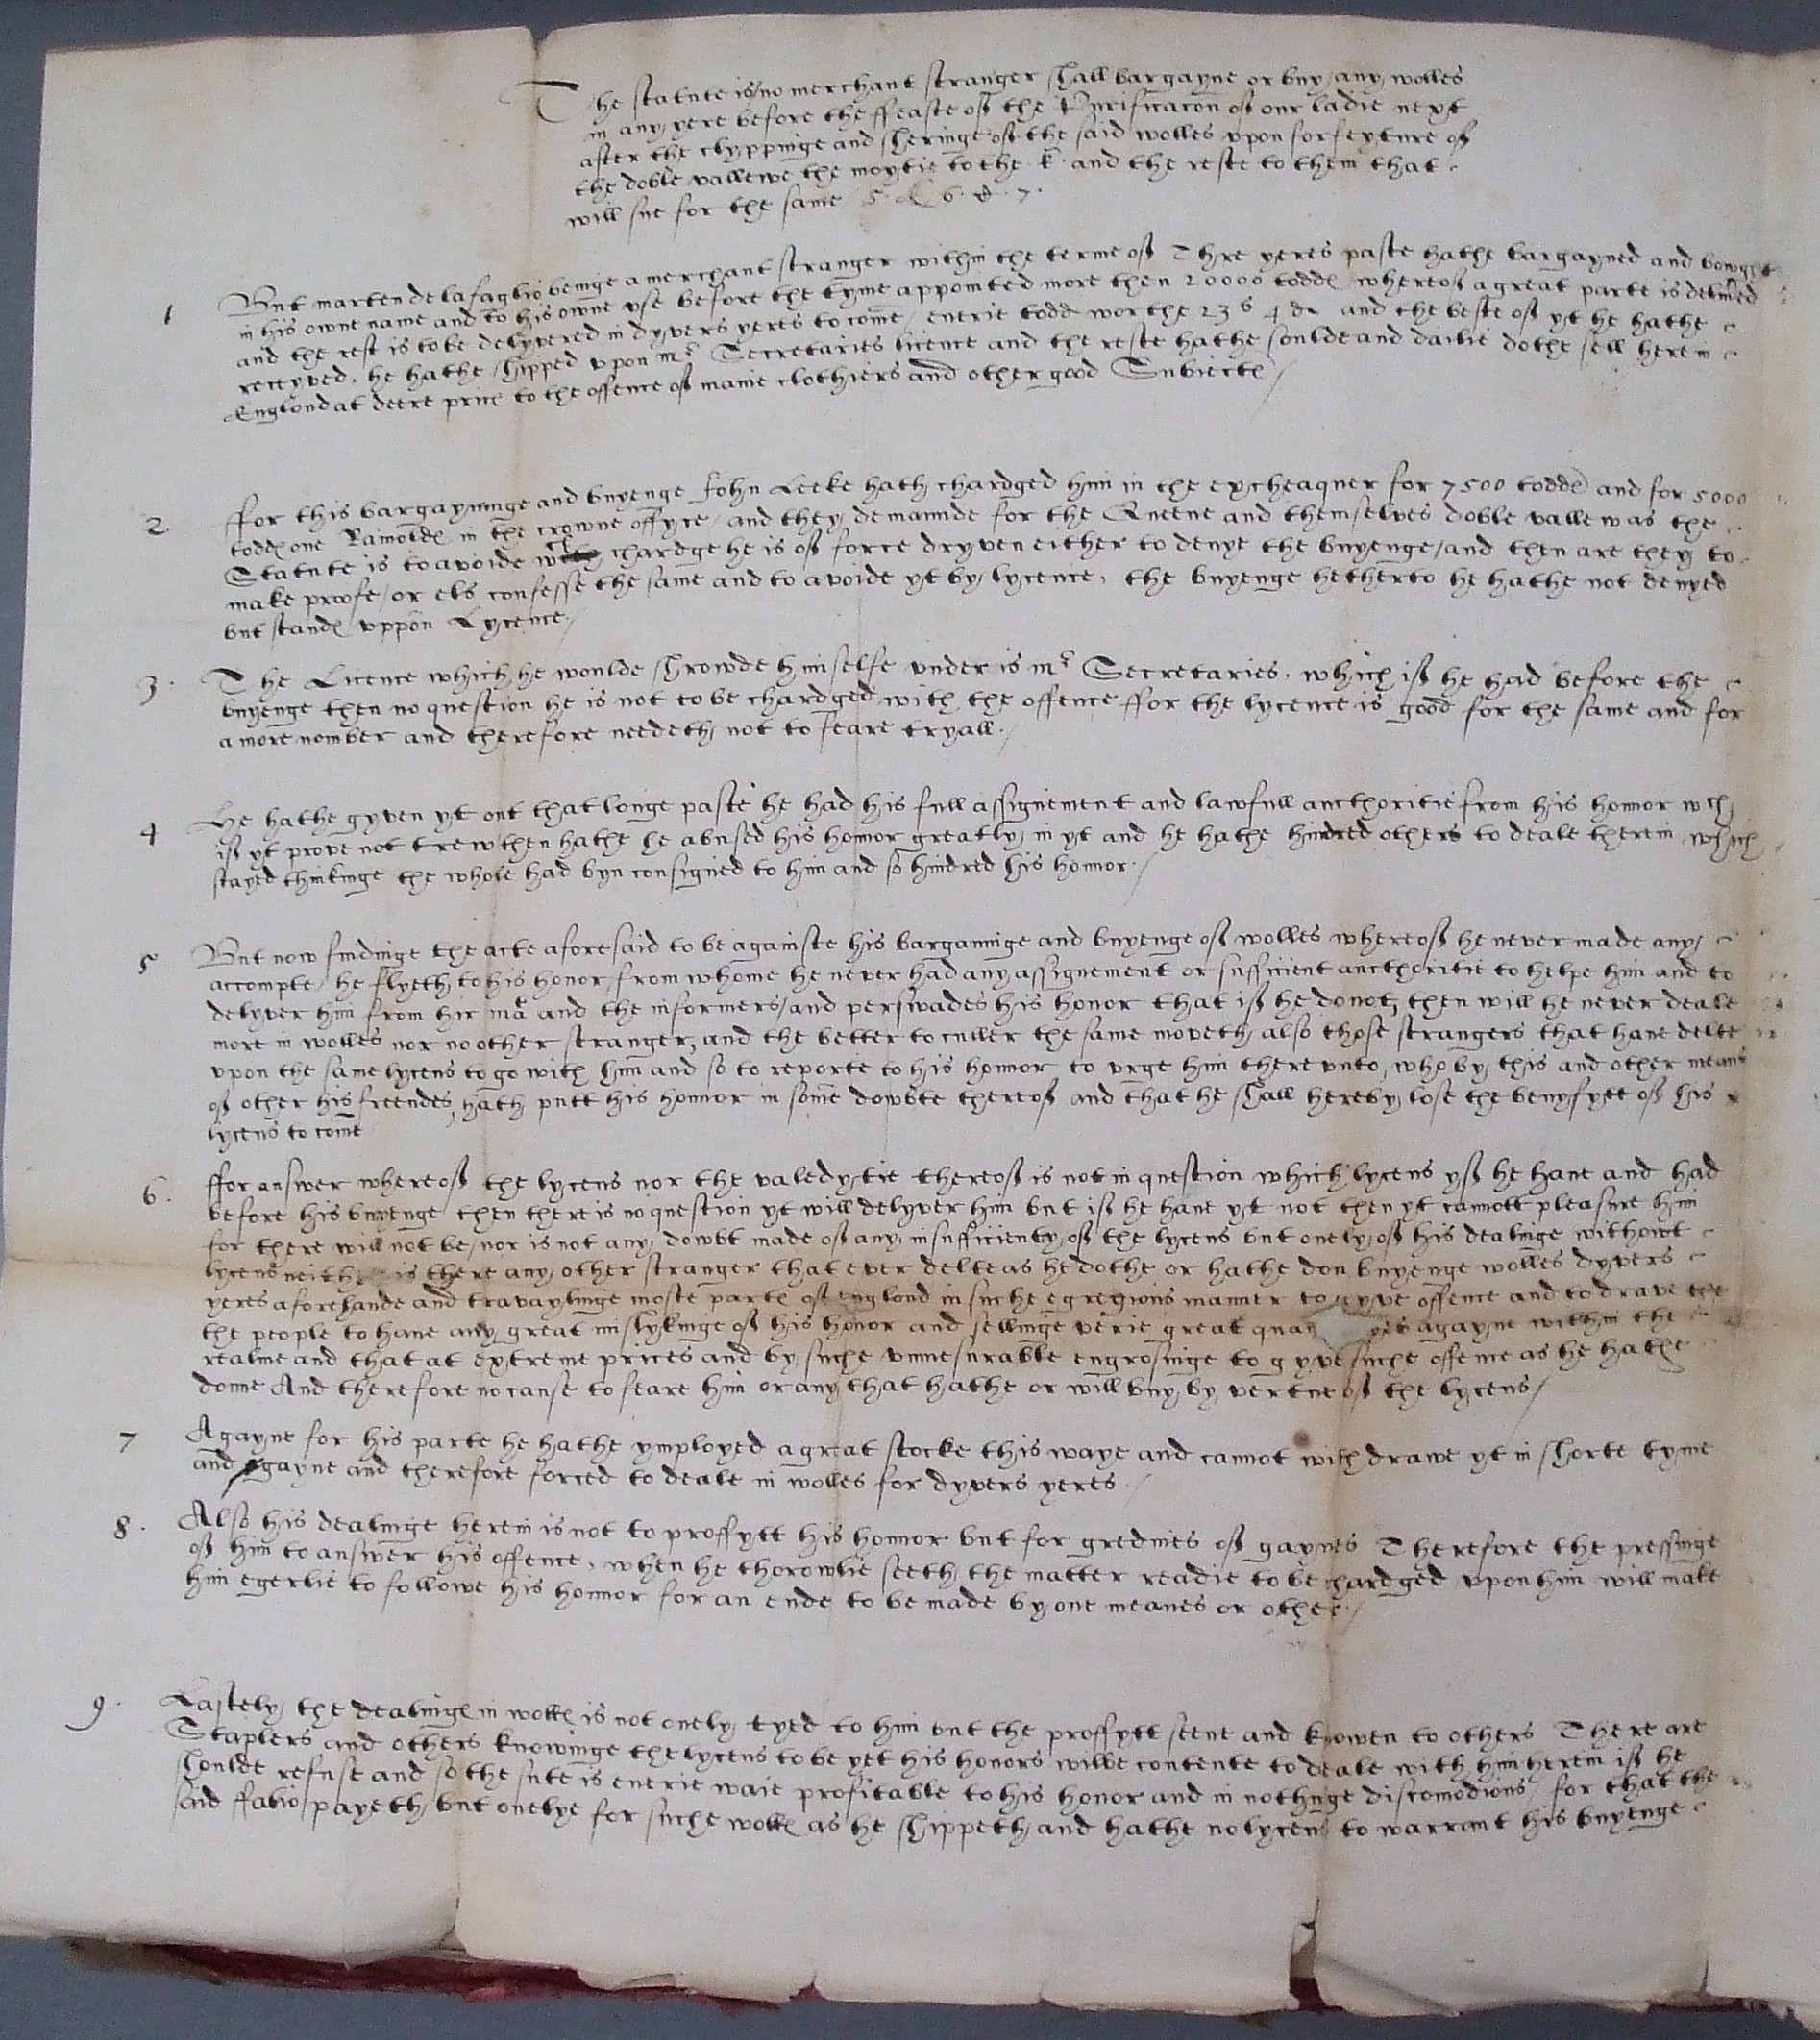 The statute is / no merchant stranger shall bargayne or buy any wolles
in any yere before the ffeaste of the Purificacon of our ladie next
after the clyppinge and sheringe of the said wolles upon forfeyture of
the doble vallewe the moytie to the k. and the reste to them that
will sue for the same 5. & 6. E. 7.
1 But marten de la faglio beinge a merchant stranger within the terme of Thre yeres paste hathe bargayned and bowght
in his owne name and to his owne use before the tyme appointed more then 20000 todd whereof a great parte is delivred
and the rest is to be delyvered in dyvers yeres to come / everie todd worthe 23s 4d and the beste of yt he hathe
receyved, he hathe shipped upon mr Secretaries licence and the reste hathe soulde and dailie dothe sell here in
Englond at deere price to the offence of manie clothiers and other good Subiectes /
2. ffor this bargayninge and buyenge John Leeke hath chardged him in the excheaquer for 7500 todde and for 5000
todd one Rainoldes in the crowne offyce / and they demaunde for the Queene and themselves doble vallew as the
Statute is to avoide wch chardge he is of force dryven either to denye the buyenge / and then are they to
make proofe / or els confesse the same and to avoide yt by lycence, the buyenge hetherto he hathe not denyed
but standes uppon Lycence /
3. The Licence which he woulde shrowde himselfe under is mr Secretaries. which if he had before the
buyenge then no question he is not to be chardged with the offence ffor the lycence is good for the same and for
a more nomber and therefore needeth not to feare tryall /
4 He hathe gyven yt out that longe paste he had his full assignement and lawfull aucthoritie from his honnor wch
if yt prove not trew then hathe he abused his honnor greatly in yt and he hathe hindred others to deale therein which
stayed thinkinge the whole had byn consigned to him and so hindred his honnor /
5 But now findinge the acte aforesaid to be againste his bargaininge and buyenge of wolles whereof he never made any
accompte / he flyeth to his honor / from whome he never had any assignement or sufficient aucthoritie to helpe him and to
delyver him from hir ma and the informers / and perswades his honor that if he do not, then will he never deale
more in wolles nor no other stranger, and the better to culler the same moveth also those strangers that have delte
upon the same lycens to go with him and so to reporte to his honnor to urge him there unto, who by this and other means
of other his freendes, hath putt his honnor in some dowbte thereof and that he shall hereby lose the benyfytt of his
lycens to come
6. ffor answer whereof the lycens nor the valedytie thereof is not in question which lycens yf he have and had
before his buyenge then there is no question yt will delyver him but if he have yt not then yt cannott pleasure him
for there will not be / nor is not any dowbt made of any insufficienty of the lycens but onely of his dealinge withowt
lycens neither is there any other stranger that ever delte as he dothe or hathe don buyenge wolles dyvers
yeres aforehande and travaylinge moste partes of Englond in suche egregious manner to gyve offence and to drave the
the people to have any great mislykinge of his honor and sellinge verie great agayne within the
realme and that at extreme prices and by suche unmesurable engrosinge to gyve suche offence as he hathe
donne And therefore no cause to feare him or any that hathe or will buy by vertue of the lycens /
7 Agayne for his parte he hathe ymployed a great stocke this waye and cannot withdrawe yt in shorte tyme
and gayne and therefore forced to deale in wolles for dyvers yeres /
8. Also his dealinge herein is not to proffytt his honnor but for gredines of gaynes Therefore the pressinge
of him to answer his offence, when he thorowlie seeth the matter readie to be chardged upon him will make
him egerlie to followe his honnor for an ende to be made by one meanes or other /
9. Lastely the dealinges in wolles is not onely tyed to him but the proffytt seene and knowen to others There are
Staplers and others knowinge the lycens to be yet his honors wilbe contente to deale with him herein if he
shoulde refuse and so the sute is everie waie profitable to his honor and in nothinge discomodious / for that the
said ffalio payeth but onelye for suche wolles as he shippeth and hathe no lycens to warrant his buyenge